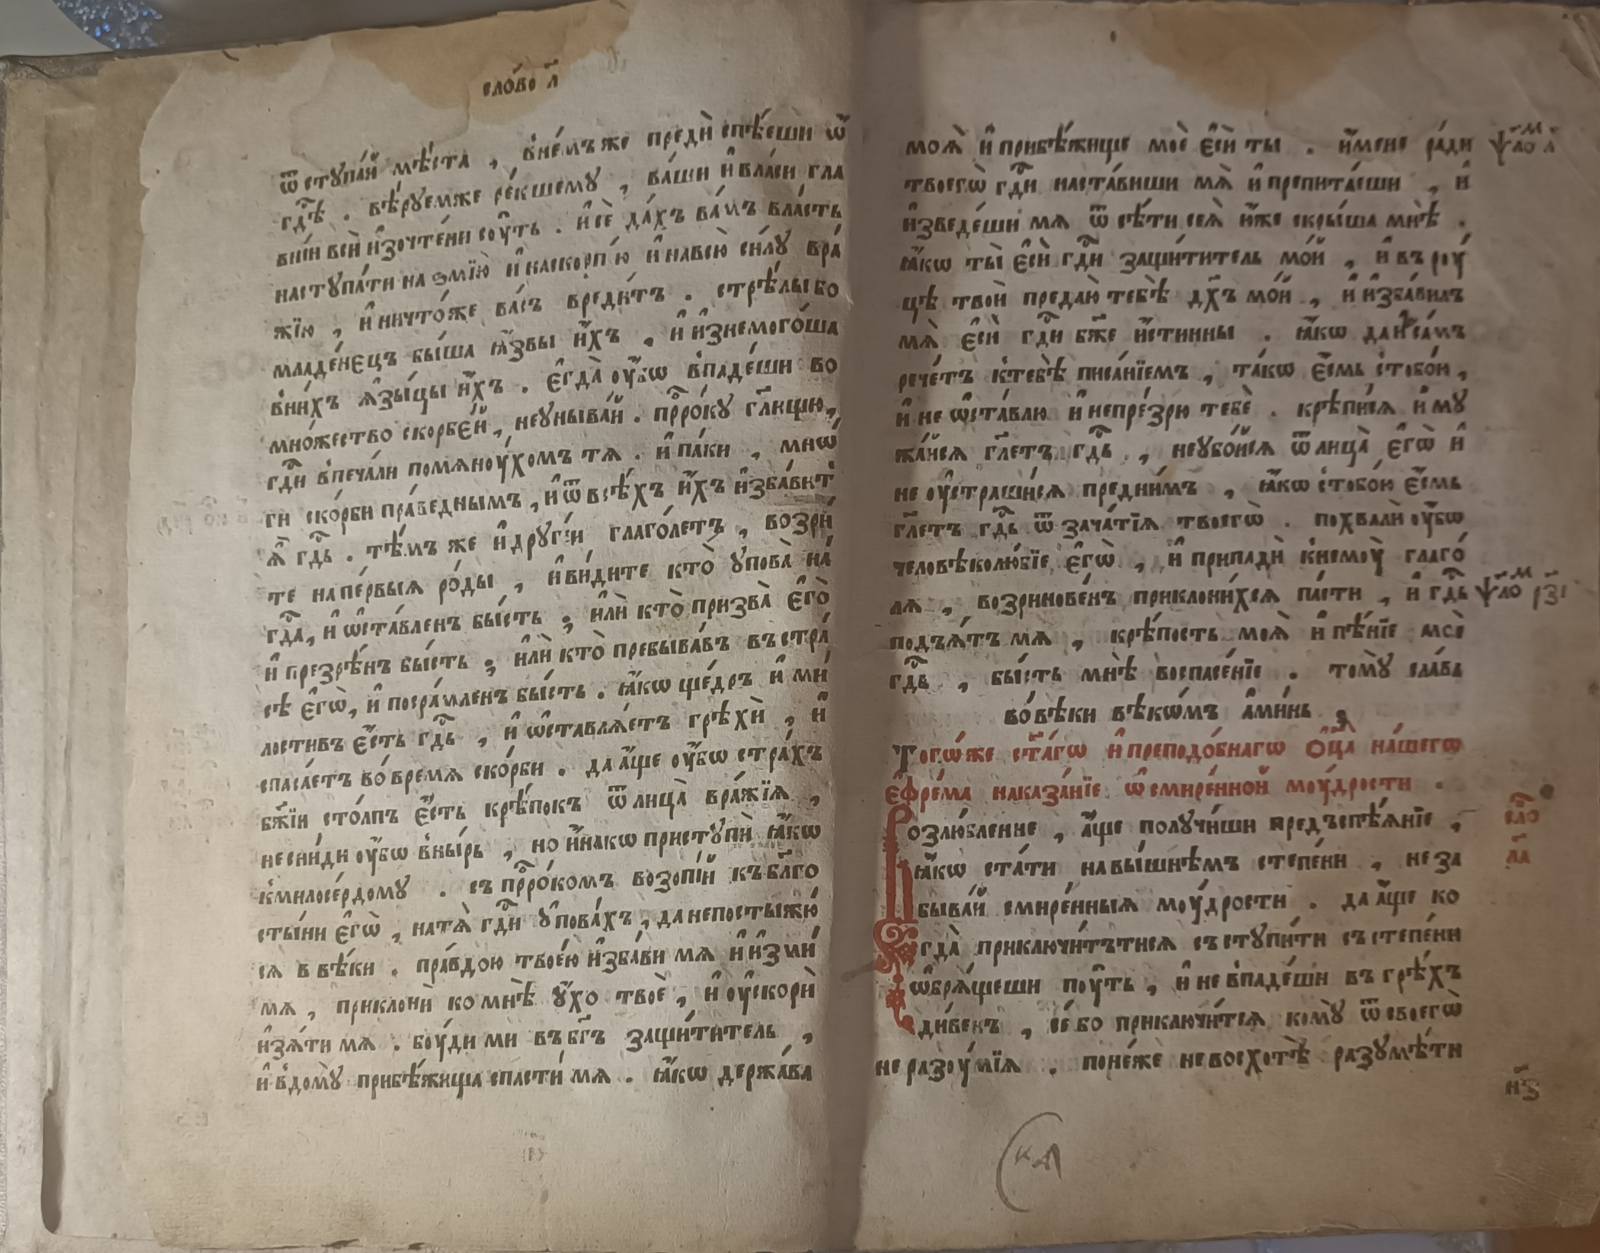 сло́во л҃
ѿступа́й мѣ́ста , в̾не́мъже предѝ спѣ́еши ѡ҆
гдⷭ҇ѣ . вѣ́руемже ре́кшему , ва́ши и҆ вла́си гла
вні́и всѝ и҆зочте́ни сꙋ́ть . и҆ сѐ да́хъ ва́мъ вла́сть
настꙋпа́ти на ѕмїю̀ и҆ наскорпїю̀ и҆ навсю̀ си́лꙋ вра́
жїю , и҆ ничто́же ва́съ вреди́тъ . стрѣ́лы бо
младе́нєцъ бы́ша ꙗ҆́звы и҆́хъ , и҆ и҆знемого́ша
в̾ни́хъ ѧ҆зы́цы и҆́хъ . є҆гда̀ оу҆́бѡ в̾паде́ши во
мно́жество скорбе́й , неꙋныва́й . прⷪ҇ро́кꙋ гл҃ющꙋ ,
гдⷭ҇и в̾печа́ли помѧнꙋ́хомъ тѧ . и҆ па́ки , мнѡ́
ги ско́рби пра́веднымъ , и҆ ѿвсѣ́хъ и҆́хъ и҆зба́вит̾
ѧ҆̀ гдⷭ҇ь . тѣ́мъ же и҆ дрꙋгі́и глаго́летъ , воззри́
те на пе́рвыѧ ро́ды , и҆ ви́дите кто̀ ᲂу҆пова̀ на́
гдⷭ҇а , и҆ ѡ҆ста́вленъ бы́сть ; и҆лѝ кто̀ призва̀ є҆го̀
и҆ презрѣ́нъ бы́сть ; и҆лѝ кто̀ пребыва́въ въ стра́
сѣ є҆гѡ̀ , и҆ посра́мленъ бы́сть . ꙗ҆́кѡ ще́дръ и҆ ми́
лостивъ є҆́сть гдⷭ҇ь , и҆ ѡ҆ставлѧ́етъ грѣхѝ , и҆
спаса́етъ во́ времѧ ско́рби . да а҆́ще оу҆́бѡ стра́хъ
бж҃їи сто́лпъ є҆́сть крѣ́покъ ѿ лица̀ вра́жїѧ ,
не сни́ди оу҆́бѡ в̾ны́рь , но и҆́накѡ пристꙋпѝ ꙗ҆́кѡ
к̾милосе́рдомꙋ . съ прⷪ҇ро́комъ возопі́й къ бл҃го
сты́ни є҆гѡ̀ , на тѧ̀ гдⷭ҇и ᲂу҆пова́хъ , да непостыжю́
сѧ в вѣ́ки . пра́вдою твое́ю и҆зба́ви мѧ и҆ и҆зми́
мѧ , приклонѝ ко мнѣ̀ ᲂу҆́хо твоѐ , и҆ оу҆скорѝ
и҆зѧ́ти мѧ . бꙋ́ди ми въ бг҃ъ защи́титель ,
и҆ в̾до́мꙋ прибѣ́жища спасти́ мѧ . ꙗ҆́кѡ держа́ва
моѧ̀ и҆ прибѣ́жище моѐ є҆сѝ ты . и҆́мене ра́ди ѱало́м л҃
твоегѡ̀ гдⷭ҇и наста́виши мѧ̀ и҆ препита́еши , и҆
и҆зведе́ши мѧ ѿ сѣ́ти сеѧ̀ и҆́же скры́ша мнѣ̀ .
ꙗ҆́кѡ ты̀ є҆сѝ гдⷭ҇и защи́титель мо́й , и҆ въ рꙋ́
цѣ твоѝ предаю̀ тебѣ̀ дх҃ъ мо́й , и҆ и҆зба́вилъ
мѧ̀ є҆сѝ гдⷭ҇и бж҃е и҆́стинны . ꙗ҆́кѡ да и҆ са́мъ
рече́тъ к̾тебѣ̀ писа́нїемъ , та́кѡ є҆́смь с̾тобо́й ,
и҆ не ѡ҆ста́влю и҆ непре́зрю тебѐ . крѣпи́сѧ и҆ мꙋ
жа́йсѧ гл҃етъ гдⷭ҇ь , неꙋбо́йсѧ ѿ лица̀ є҆гѡ̀ и҆
не оу҆страши́сѧ предни́мъ , ꙗ҆́кѡ с̾тобо́й є҆́смь
гл҃етъ гдⷭ҇ь ѿ зача́тїѧ твоегѡ̀ . похвалѝ оу҆́бѡ
человѣколю́бїе є҆гѡ̀ , и҆ припадѝ к̾немꙋ̀ глаго́
лѧ , возринове́нъ приклони́хсѧ па́сти , и҆ гдⷭ҇ь ѱало́м рз҃і
подъѧ́тъ мѧ , крѣ́пость моѧ̀ и҆ пѣ́нїе моѐ
гдⷭ҇ь , бы́сть мнѣ̀ воспасе́нїе . томꙋ̀ сла́ва
во́ вѣки вѣкѡ́мъ а҆ми́нь
Тогѡ́же ст҃а́гѡ и҆ преподо́бнагѡ ѻ҆ц҃а̀ на́шегѡ
є҆фре́ма наказа́нїе ѡ҆ смире́нной мꙋ́дрости .
Возлю́бленне , а҆́ще полꙋчи́ши предъспѣ́ѧнїе , сло́
ꙗ҆́кѡ ста́ти на вы́шнѣмъ степе́ни , не за л҃а
быва́й смире́нныѧ мꙋ́дрости . да а҆́ще ко
гда̀ приключи́тътисѧ състꙋпи́ти съ степе́ни
ѡ҆брѧ́щеши пꙋ́ть , и҆ не в̾паде́ши въ грѣ́хъ
ди́венъ , се́ бо приключи́тсѧ комꙋ̀ ѿ своегѡ̀
не разꙋ́мїѧ . поне́же не восхотѣ̀ разꙋмѣ́ти
н҃з
ка